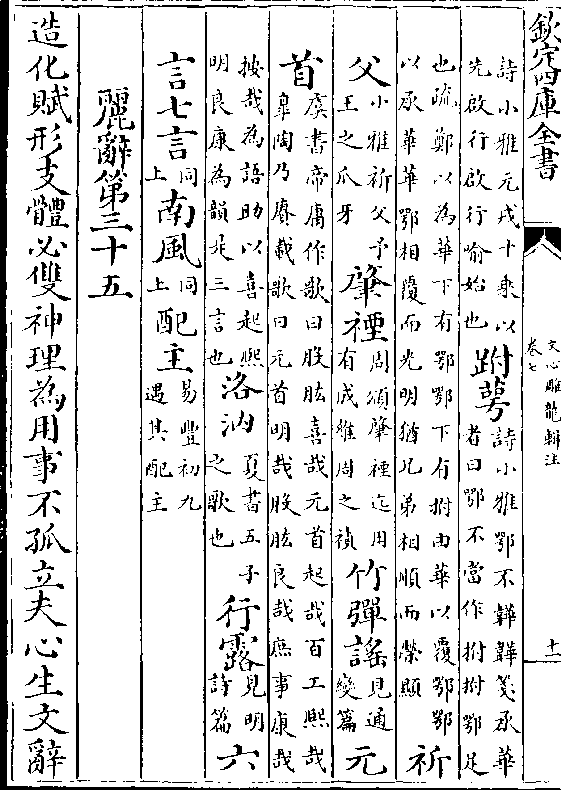 欽定四庫全書
文心雕龍輯注
卷七
十一
詩小雅元戎十乘以
先啟行啟行喻始也
跗萼
詩小雅鄂不韡韡箋承華
者曰鄂不當作拊拊鄂足
也疏鄭以為華下有鄂鄂下有拊由華以覆鄂鄂
以承華華鄂相覆而光明猶兄弟相順而榮顯
祈
父
小雅祈父予
王之爪牙
肇禋
周頌肇禋迄用
有成維周之禎
竹彈謠
見通
變篇
元
首
虞書帝庸作歌曰股肱喜哉元首起哉百工熙哉
臯陶乃賡載歌曰元首明哉股肱良哉庶事康哉
按哉為語助以喜起熙
明良康為韻非三言也
洛汭
夏書五子
之歌也
行露
見明
詩篇
六
言七言
同
上
南風
同
上
配主
易豐初九
遇其配主
麗辭第三十五
造化賦形支體必雙神理為用事不孤立夫心生文辭